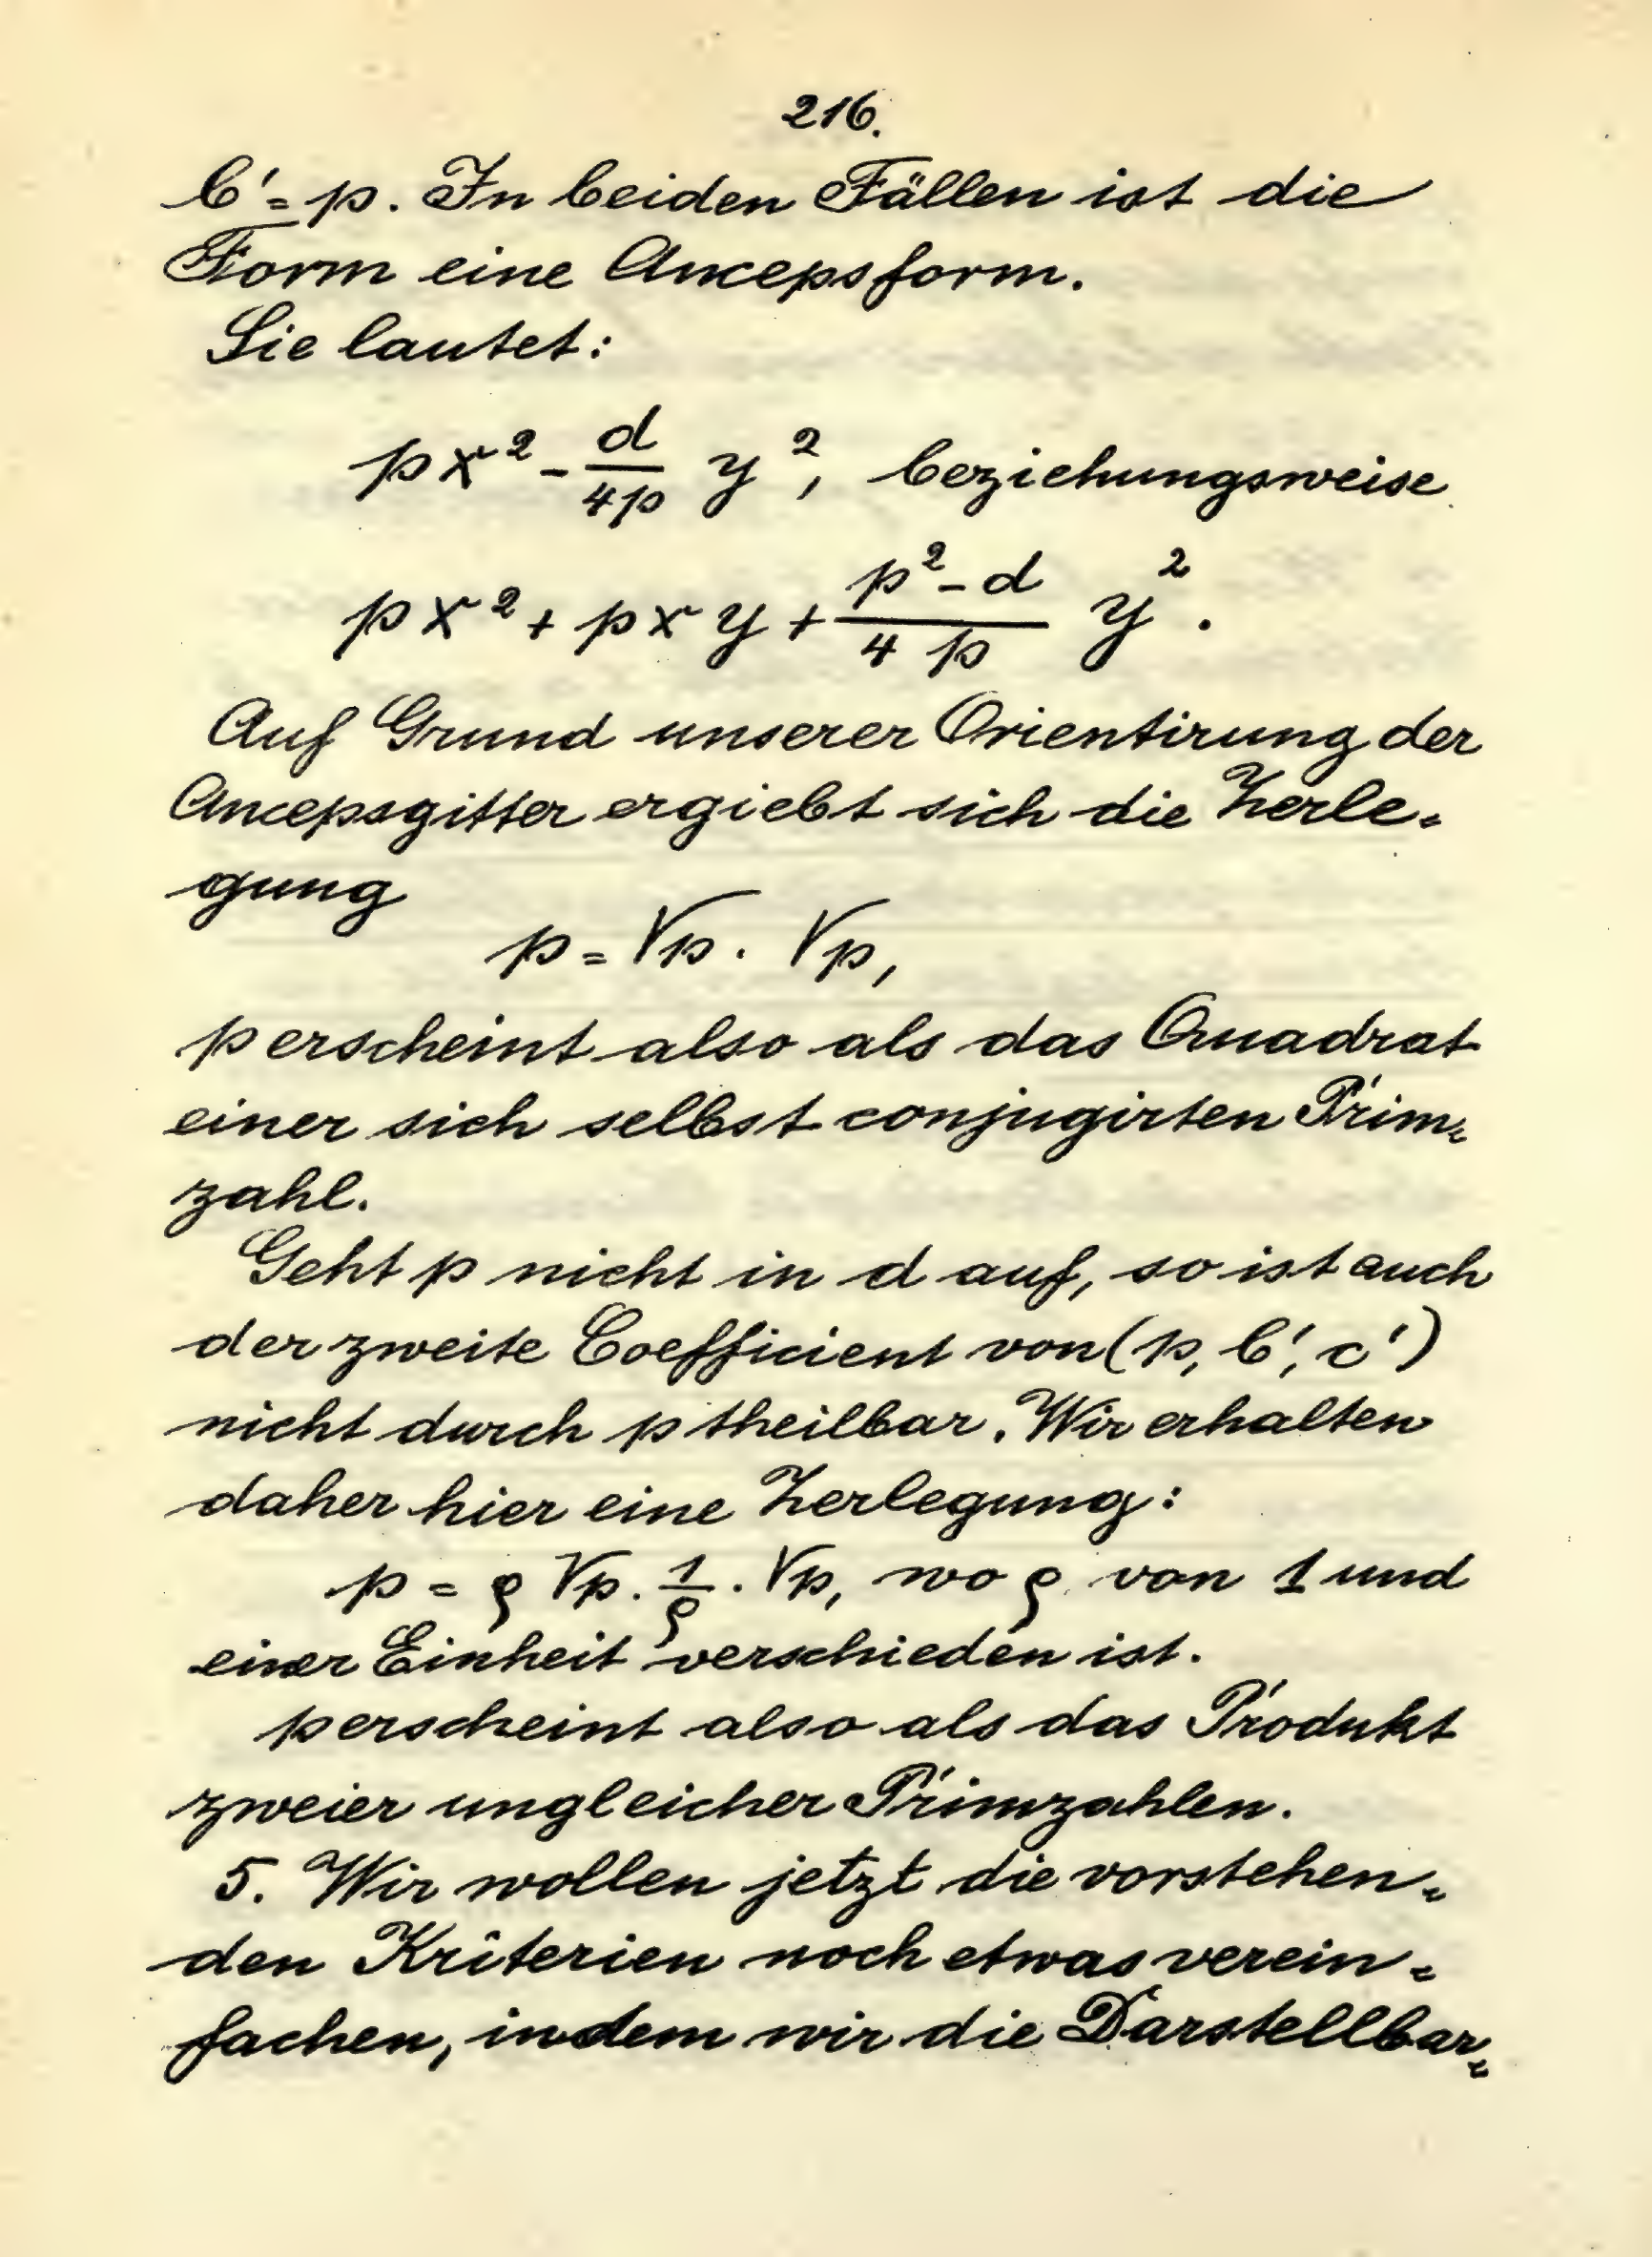 216.
b' = p. In beiden Fällen ist die
Form eine Ancepsform.
Sie lautet:
px² - d/4p y², beziehungsweise
px² + pxy + p² - d/4p y².
Auf Grund unserer Orientirung der
Ancepsgitter ergiebt sich die Zerle=
gung
p = √p · √p,
p erscheint also als das Quadrat
einer sich selbst conjugirten Prim=
zahl.
Geht p nicht in d auf, so ist auch
der zweite Coefficient von (p, b', c')
nicht durch p theilbar. Wir erhalten
daher hier eine Zerlegung:
p = ρ √p · 1/ρ · √p, wo ρ von 1 und
einer Einheit verschieden ist.
p erscheint also als das Produkt
zweier ungleicher Primzahlen.
5. Wir wollen jetzt die vorstehen=
den Kriterien noch etwas verein=
fachen, indem wir die Darstellbar=